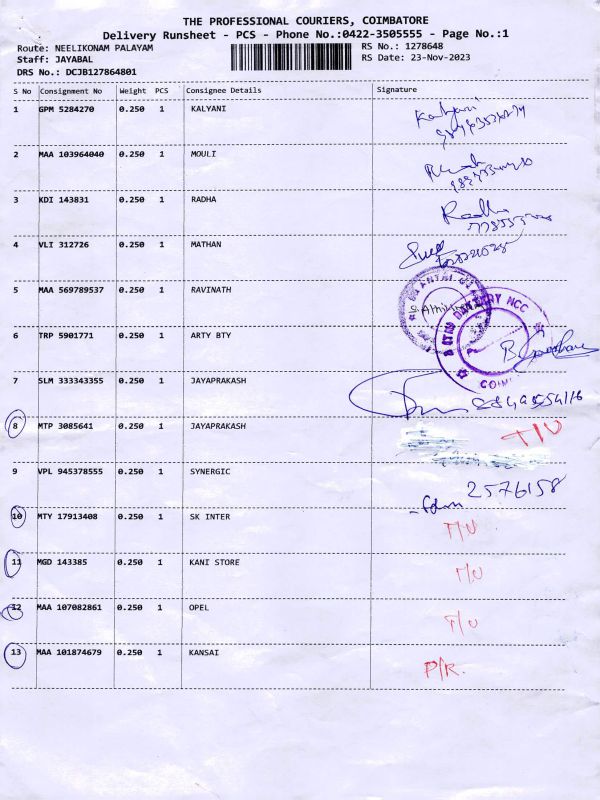 THE PROFESSIONAL COURIERS, COIMBATORE
Delivery Runsheet - PCS - Phone No.:0422-3505555 - Page No.:1
Route: NEELIKONAM PALAYAM RS No.: 1278648
Staff: JAYABAL RS Date: 23-Nov-2023
DRS No.: DCJB127864801
S No Consignment No Weight PCS Consignee Details Signature
1 GPM 5284270 0.250 1 KALYANI Kalyani
2 MAA 103964040 0.250 1 MOULI
3 KDI 143831 0.250 1 RADHA Radha
4 VLI 312726 0.250 1 MATHAN
5 MAA 569789537 0.250 1 RAVINATH
6 TRP 5901771 0.250 1 ARTY BTY
7 SLM 333343355 0.250 1 JAYAPRAKASH
8 MTP 3085641 0.250 1 JAYAPRAKASH T/U
9 VPL 945378555 0.250 1 SYNERGIC 2576158
10 MTY 17913408 0.250 1 SK INTER T/U
11 MGD 143385 0.250 1 KANI STORE T/U
12 MAA 107082861 0.250 1 OPEL T/U
13 MAA 101874679 0.250 1 KANSAI P/R.